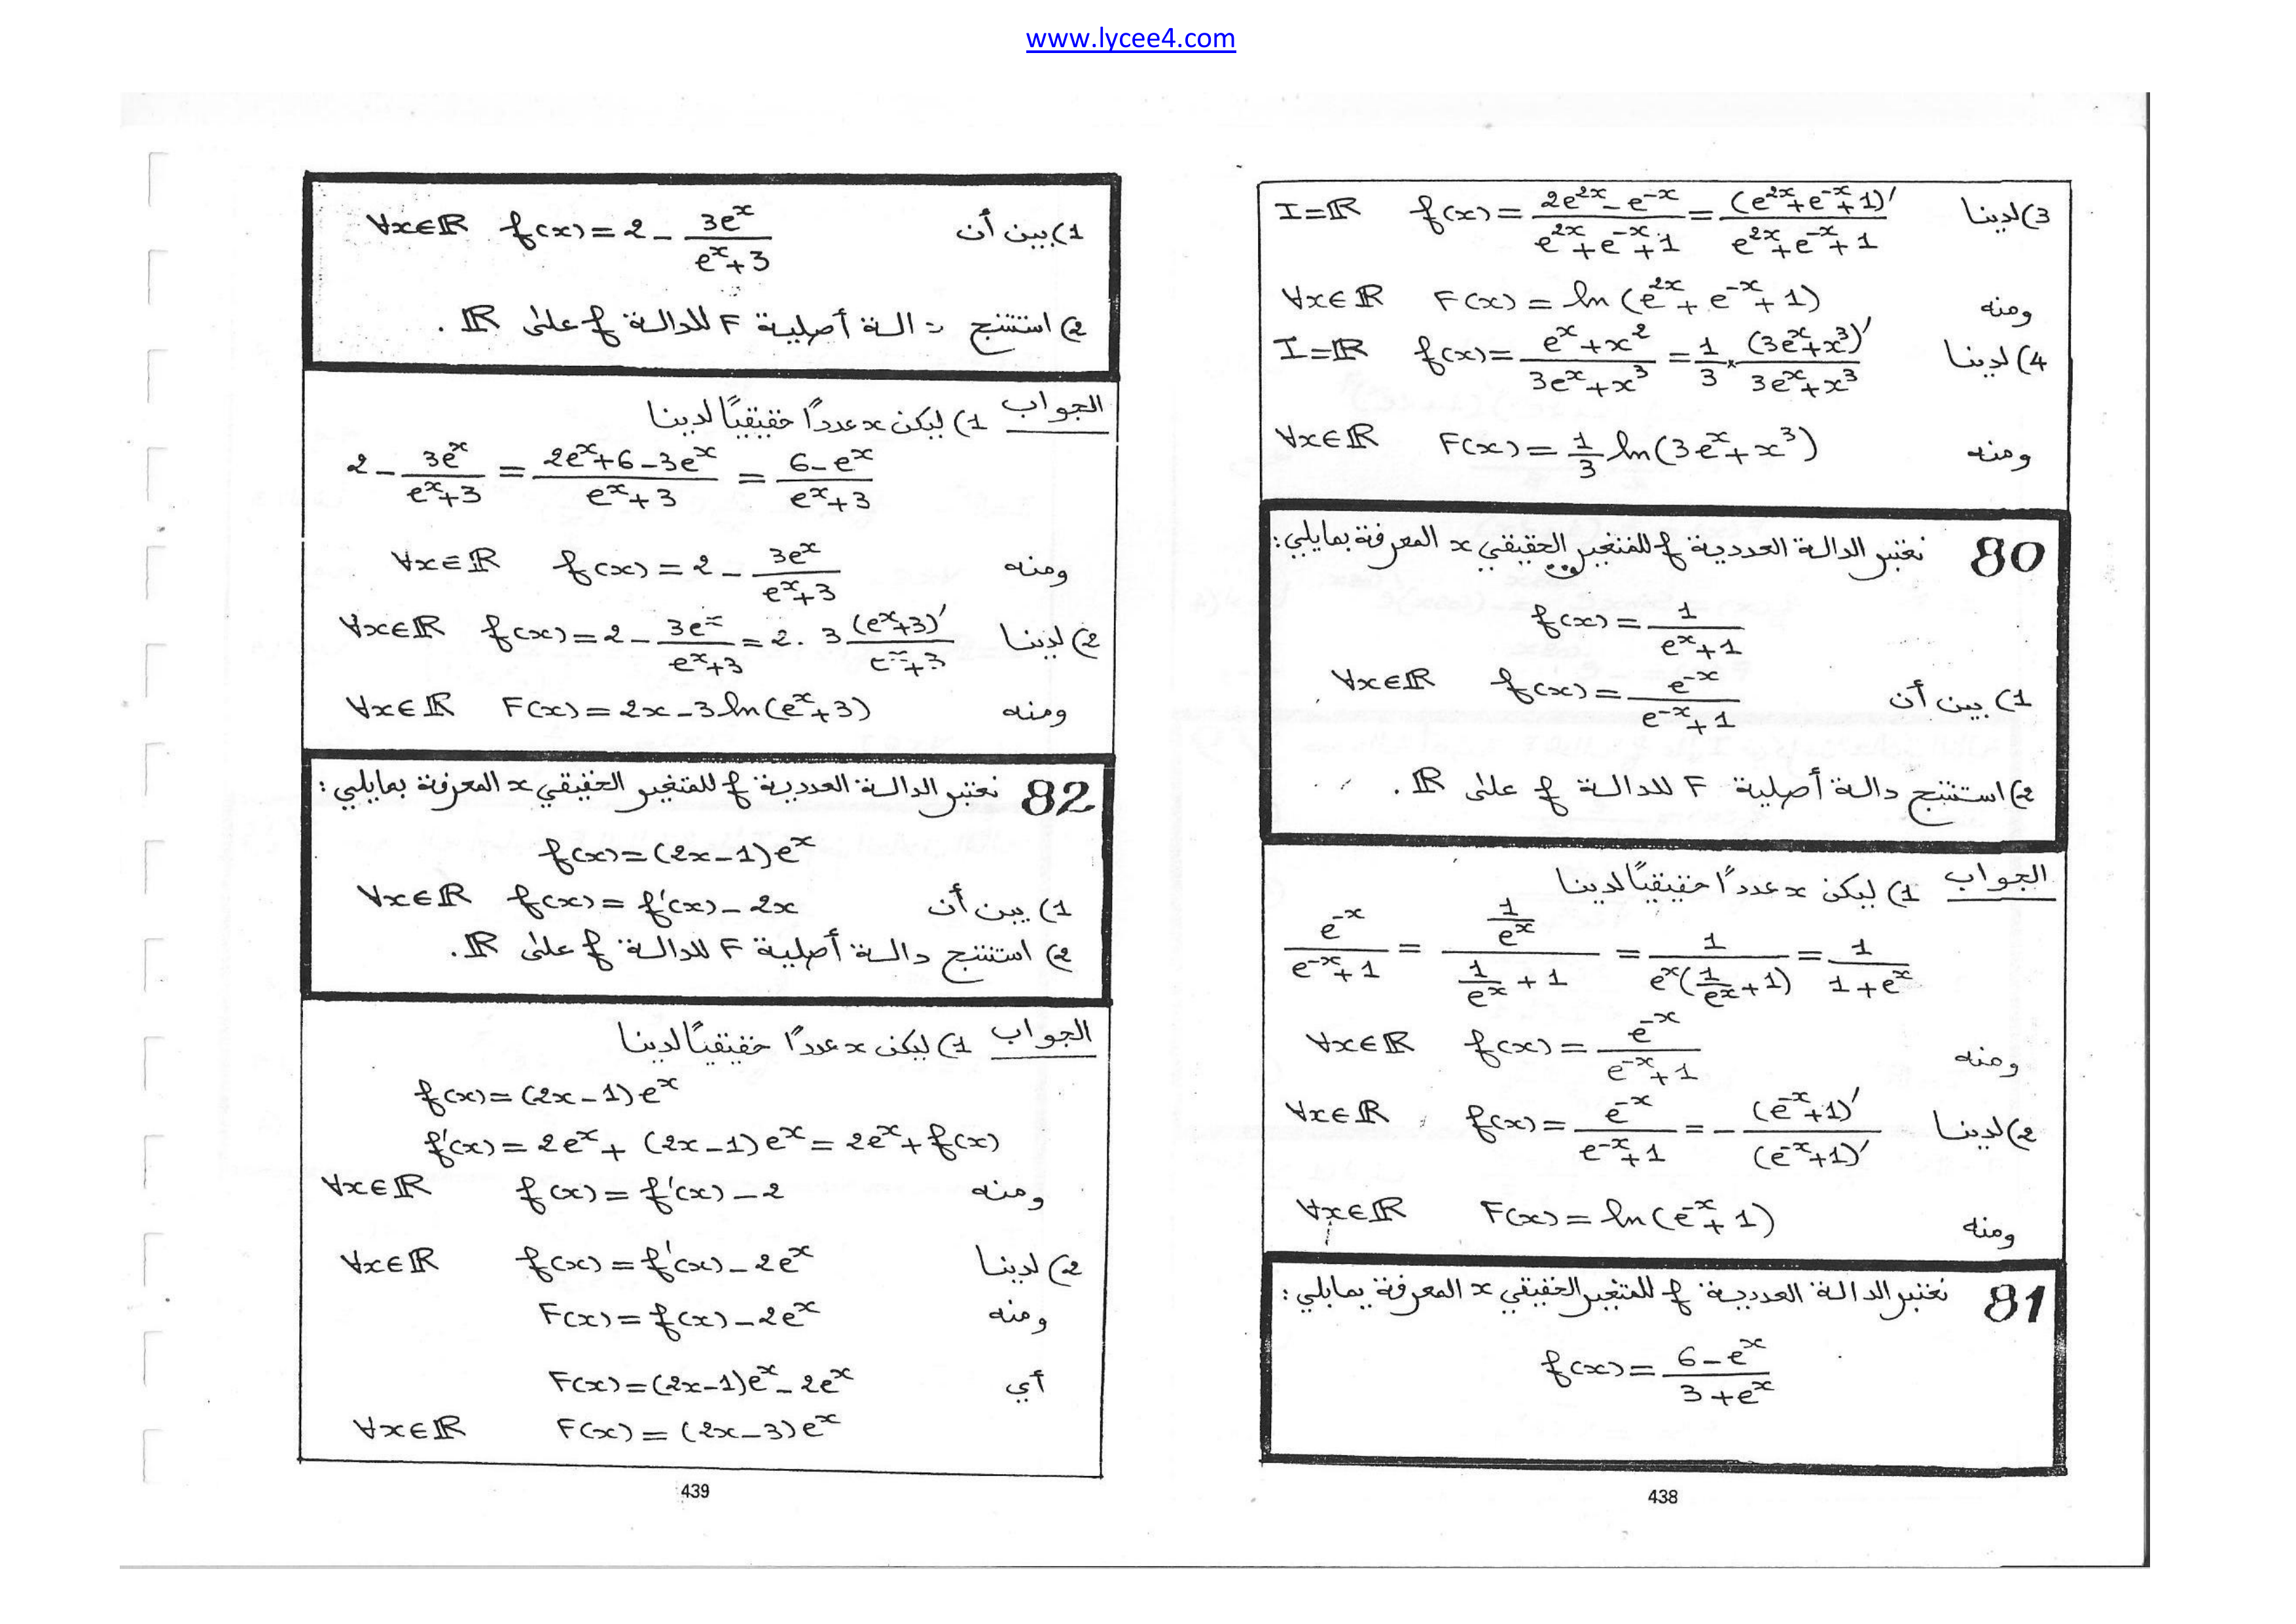 www.lycee4.com
3) لدينا f(x) = (2e^{2x} - e^{-x})/(e^{2x} + e^{-x} + 1) = (e^{2x} + e^{-x} + 1)'/(e^{2x} + e^{-x} + 1) I = ℝ
ومنه F(x) = ln(e^{2x} + e^{-x} + 1) ∀x∈ℝ
4) لدينا f(x) = (e^x + x^2)/(3e^x + x^3) = 1/3 × (3e^x + x^3)'/(3e^x + x^3) I = ℝ
ومنه F(x) = 1/3 ln(3e^x + x^3) ∀x∈ℝ
80 نعتبر الدالة العددية f للمتغير الحقيقي x المعرفة بمايلي:
f(x) = 1/(e^x + 1)
1) بين أن f(x) = e^{-x}/(e^{-x} + 1) ∀x∈ℝ
2) استنتج دالة أصلية F للدالة f على ℝ.
الجواب 1) ليكن x عدداً حقيقياً لدينا
e^{-x}/(e^{-x} + 1) = (1/e^x)/(1/e^x + 1) = 1/(e^x(1/e^x + 1)) = 1/(1 + e^x)
ومنه f(x) = e^{-x}/(e^{-x} + 1) ∀x∈ℝ
2) لدينا f(x) = e^{-x}/(e^{-x} + 1) = - (e^{-x} + 1)'/(e^{-x} + 1)' ∀x∈ℝ
ومنه F(x) = ln(e^{-x} + 1) ∀x∈ℝ
81 نعتبر الدالة العددية f للمتغير الحقيقي x المعرفة بمايلي:
f(x) = (6 - e^x)/(3 + e^x)
438
1) بين أن f(x) = 2 - 3e^x/(e^x + 3) ∀x∈ℝ
2) استنتج دالة أصلية F للدالة f على ℝ.
الجواب 1) ليكن x عدداً حقيقياً لدينا
2 - 3e^x/(e^x + 3) = (2e^x + 6 - 3e^x)/(e^x + 3) = (6 - e^x)/(e^x + 3)
ومنه f(x) = 2 - 3e^x/(e^x + 3) ∀x∈ℝ
2) لدينا f(x) = 2 - 3e^x/(e^x + 3) = 2 - 3 (e^x + 3)'/(e^x + 3) ∀x∈ℝ
ومنه F(x) = 2x - 3 ln(e^x + 3) ∀x∈ℝ
82 نعتبر الدالة العددية f للمتغير الحقيقي x المعرفة بمايلي:
f(x) = (2x - 1)e^x
1) بين أن f(x) = f'(x) - 2x ∀x∈ℝ
2) استنتج دالة أصلية F للدالة f على ℝ.
الجواب 1) ليكن x عدداً حقيقياً لدينا
f(x) = (2x - 1)e^x
f'(x) = 2e^x + (2x - 1)e^x = 2e^x + f(x)
ومنه f(x) = f'(x) - 2 ∀x∈ℝ
2) لدينا f(x) = f'(x) - 2e^x ∀x∈ℝ
ومنه F(x) = f(x) - 2e^x
أي F(x) = (2x - 1)e^x - 2e^x
F(x) = (2x - 3)e^x ∀x∈ℝ
439